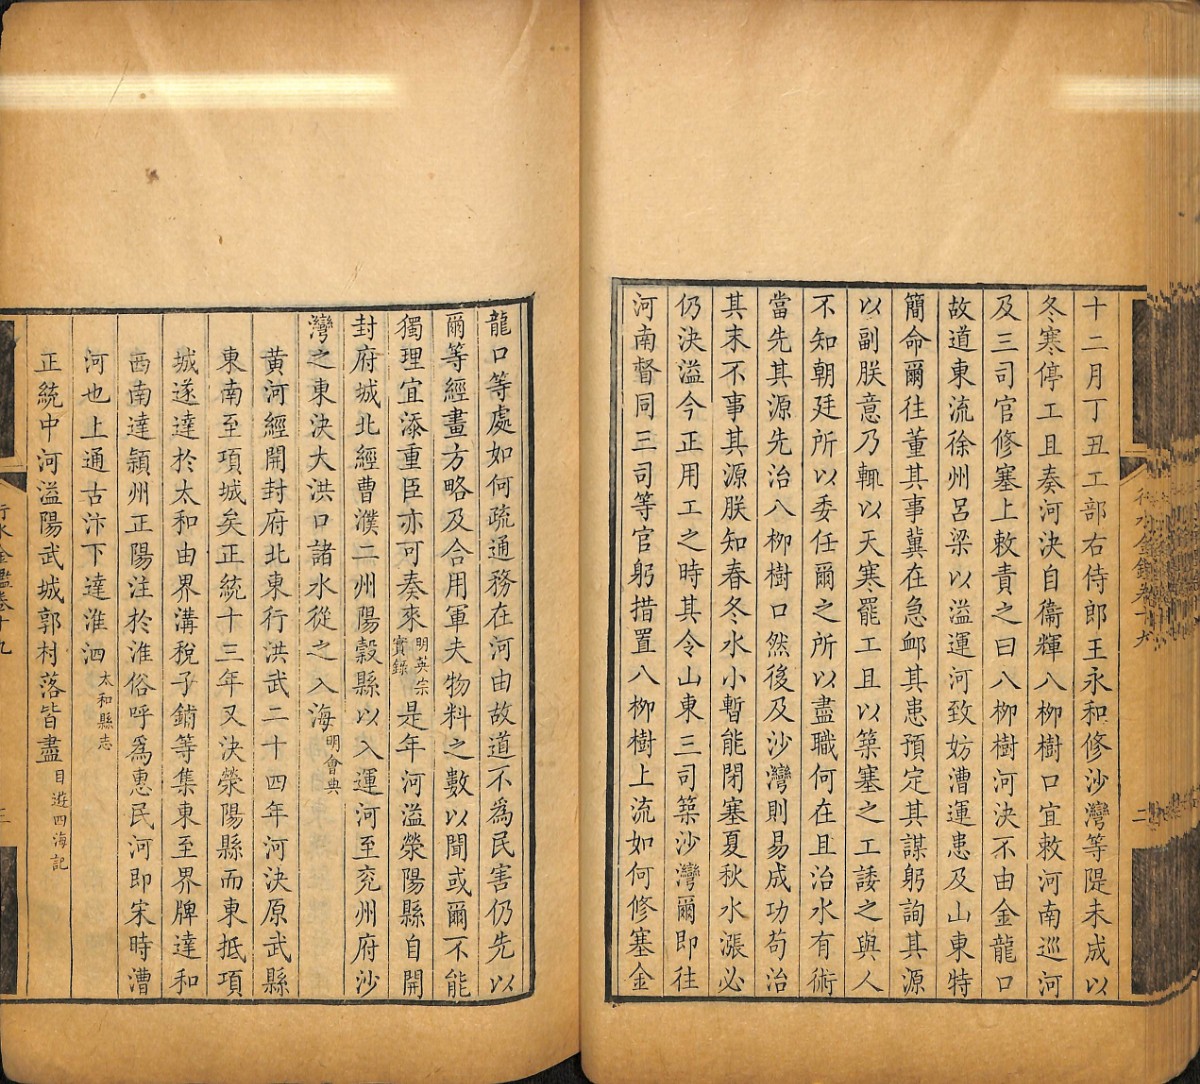 十二月丁丑工部右侍郎王永和修沙灣等隄未成以
冬寒停工且奏河決自衞輝八柳樹口宜敕河南巡河
及三司官修塞上敕責之曰八柳樹河決不由金龍口
故道東流徐州呂梁以溢運河致妨漕運患及山東特
簡命爾往董其事冀在急卹其患預定其謀躬詢其源
以副朕意乃輒以天寒罷工且以築塞之工諉之與人
不知朝廷所以委任爾之所以盡職何在且治水有術
當先其源先治八柳樹口然後及沙灣則易成功苟治
其末不事其源朕知春冬水小暫能閉塞夏秋水漲必
仍決溢今正用工之時其令山東三司築沙灣爾即往
河南督同三司等官躬措置八柳樹上流如何修塞金
行水金鑑卷十九
二
龍口等處如何疏通務在河由故道不爲民害仍先以
爾等經畫方略及合用軍夫物料之數以聞或爾不能
獨理宜添重臣亦可奏來明英宗實錄是年河溢滎陽縣自開
封府城北經曹濮二州陽穀縣以入運河至兗州府沙
灣之東決大洪口諸水從之入海明會典
黄河經開封府北東行洪武二十四年河決原武縣
東南至項城矣正統十三年又決滎陽縣而東抵項
城遂達於太和由界溝稅子鋪等集東至界牌達和
西南達潁州正陽注於淮俗呼爲惠民河即宋時漕
河也上通古汴下達淮泗太和縣志
正統中河溢陽武城郭村落皆盡目遊四海記
行水金鑑卷十九
三